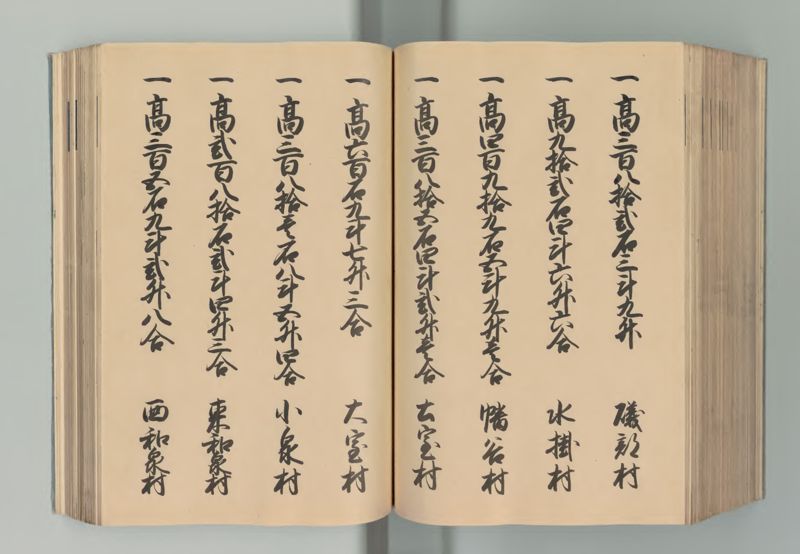 一高三百八拾弐石三斗九升 磯部村
一高九拾弐石四斗六升六合 水掛村
一高四百九拾九石五斗九升壱合 幡谷村
一高三百八拾五石四斗弐升壱合 土室村
一高六百石九斗七升三合 大室村
一高三百八拾壱石八斗五升四合 小泉村
一高弐百八拾石弐斗四升二合 東和泉村
一高三百五石九斗弐升八合 西和泉村